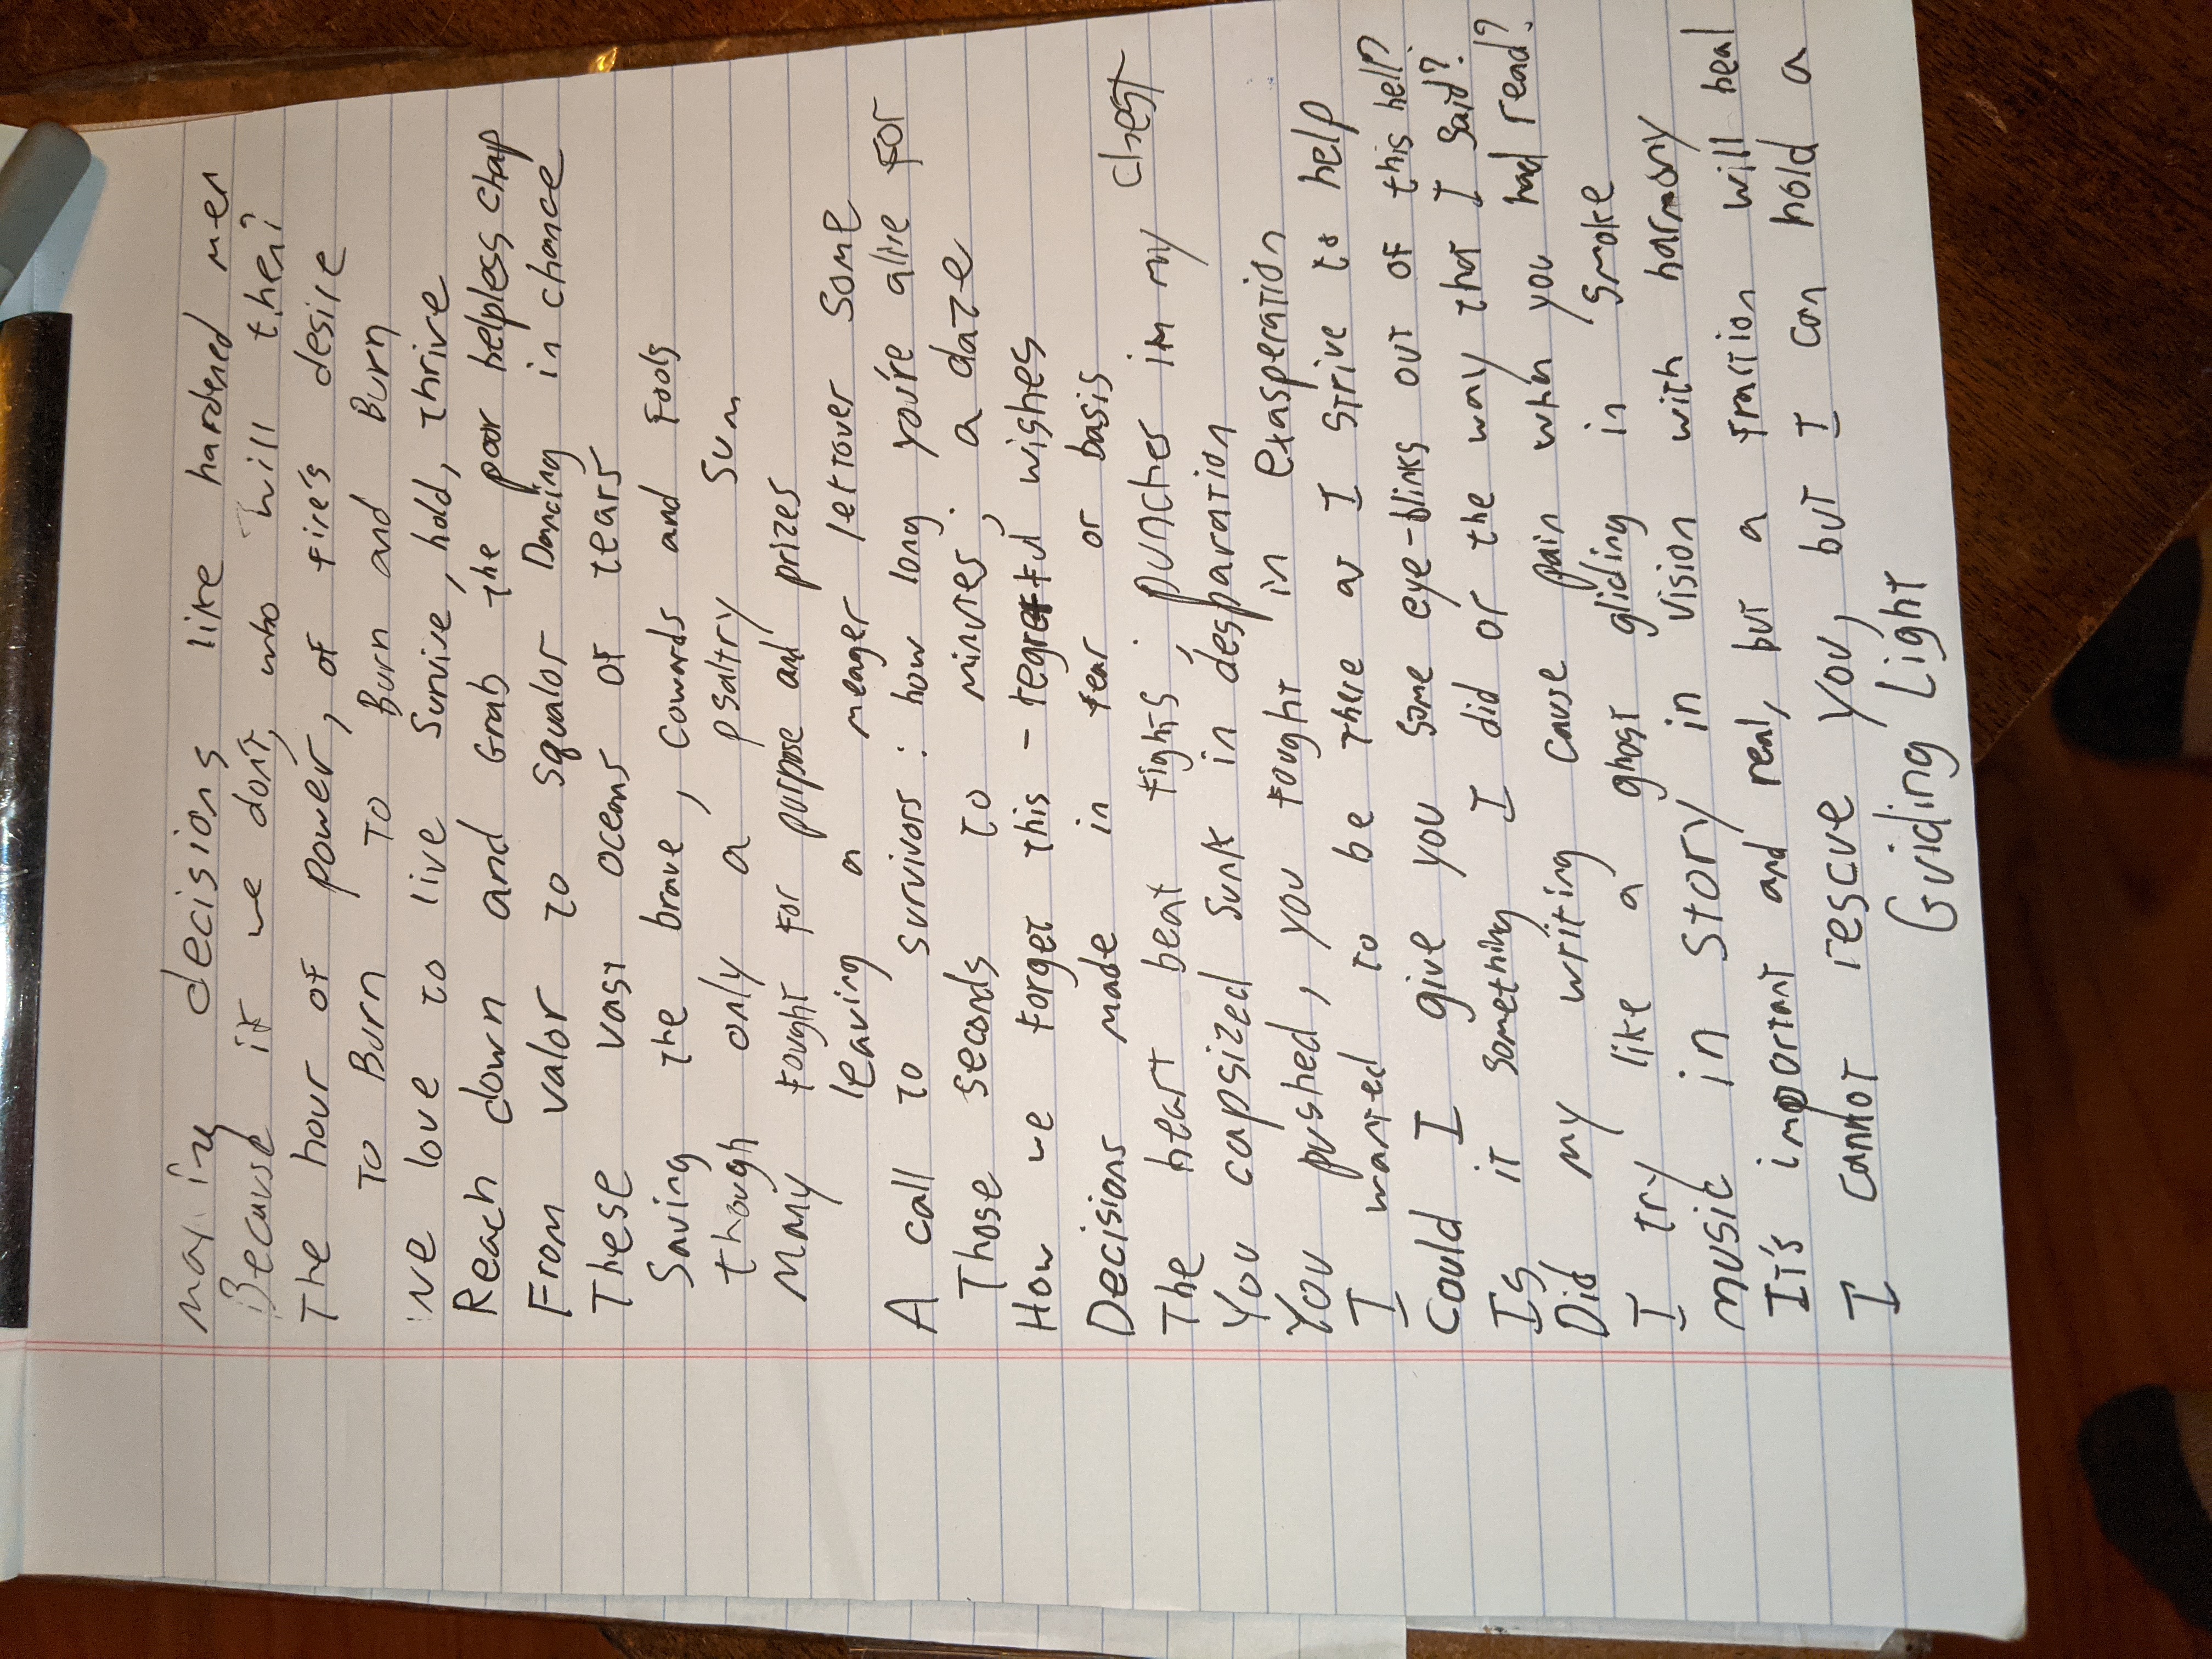 making decisions like hardened men
Because if we don't, who will then?
The hour of power, of fire's desire
To Burn To Burn and Burn
We love to live Survive, hold, thrive
Reach down and Grab the poor helpless chap
From valor to squalor Dancing in chance
These vast oceans of tears
Saving the brave, cowards and fools
though only a psaltry sum
Many fought for purpose and prizes
leaving a meager leftover some
A call to survivors: how long you're alive for
Those seconds to minutes, a daze
How we forget this - regretful wishes
Decisions made in fear or basis
The heart beat fights, punches in my chest
You capsized sunk in desparation
You pushed, you fought in exasperation
I wanted to be there as I strive to help
Could I give you some eye-blinks out of this hell?
Is it something I did or the way that I said?
Did my writing cause pain when you had read?
I try like a ghost gliding in smoke
Music in story in vision with harmony
It's important and real, but a fraction will heal
I cannot rescue you, but I can hold a
Guiding Light